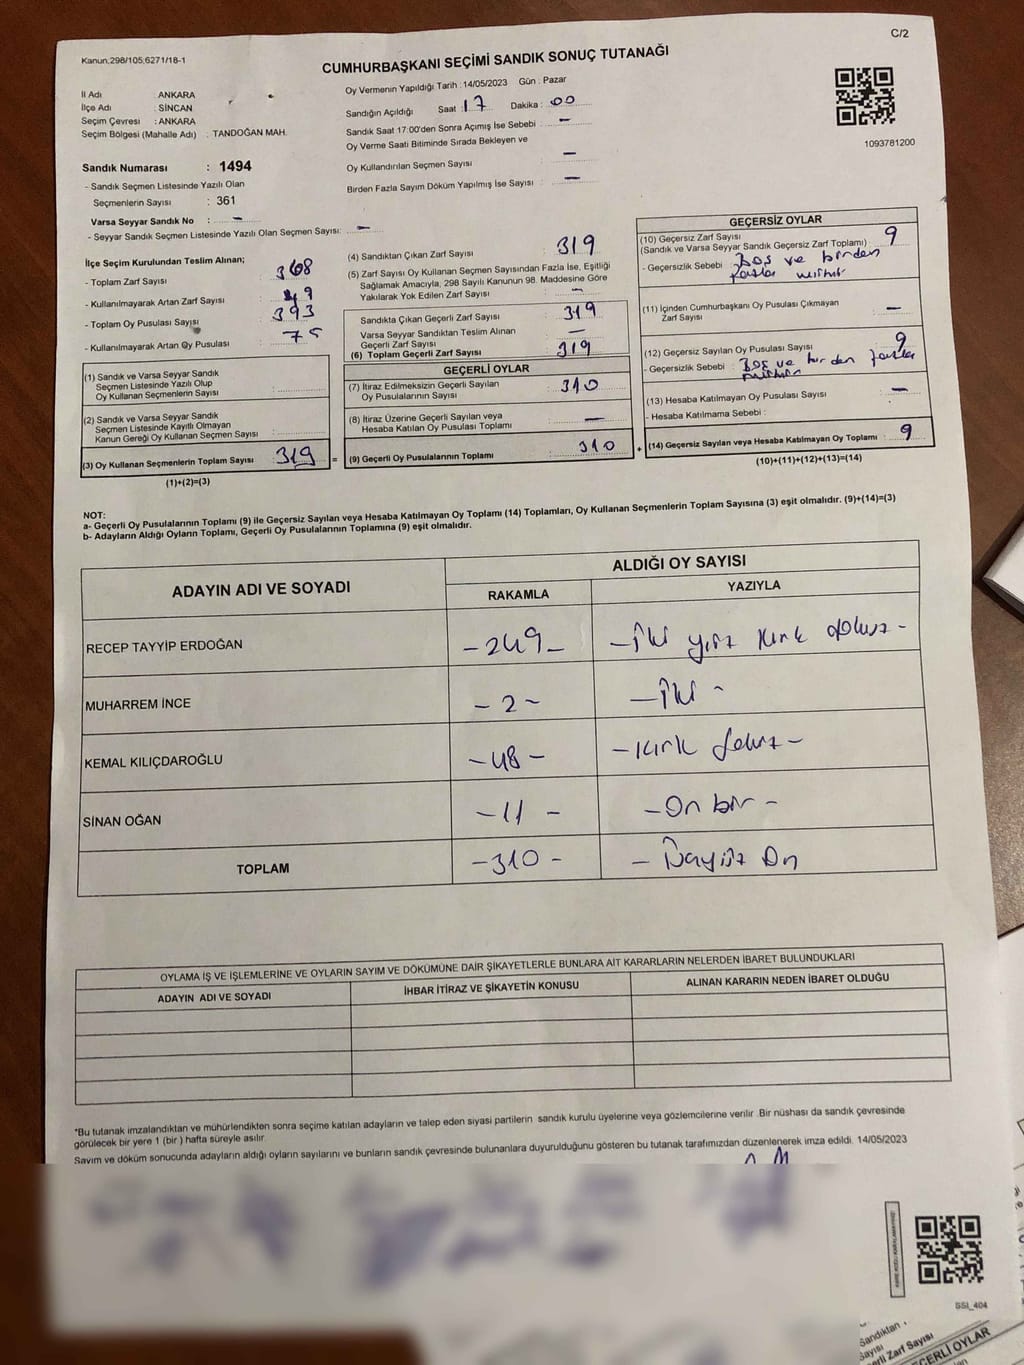 C/2
Kanun,298/105,6271/18-1
CUMHURBAŞKANI SEÇİMİ SANDIK SONUÇ TUTANAĞI
İl Adı : ANKARA
İlçe Adı : SİNCAN
Seçim Çevresi : ANKARA
Seçim Bölgesi (Mahalle Adı) : TANDOĞAN MAH.
Oy Vermenin Yapıldığı Tarih : 14/05/2023 Gün : Pazar
Sandığın Açıldığı Saat : 17 Dakika : 00
Sandık Saat 17:00'den Sonra Açımış İse Sebebi : –
Oy Verme Saati Bitiminde Sırada Bekleyen ve
Oy Kullandırılan Seçmen Sayısı –
Birden Fazla Sayım Döküm Yapılmış İse Sayısı : –
1093781200
Sandık Numarası : 1494
- Sandık Seçmen Listesinde Yazılı Olan
Seçmenlerin Sayısı : 361
Varsa Seyyar Sandık No : –
- Seyyar Sandık Seçmen Listesinde Yazılı Olan Seçmen Sayısı: –
İlçe Seçim Kurulundan Teslim Alınan;
- Toplam Zarf Sayısı : 368
- Kullanılmayarak Artan Zarf Sayısı : 49
- Toplam Oy Pusulası Sayısı : 393
- Kullanılmayarak Artan Oy Pusulası : 75
(1) Sandık ve Varsa Seyyar Sandık
Seçmen Listesinde Yazılı Olup
Oy Kullanan Seçmenlerin Sayısı :
(2) Sandık ve Varsa Seyyar Sandık
Seçmen Listesinde Kayıtlı Olmayan
Kanun Gereği Oy Kullanan Seçmen Sayısı :
(3) Oy Kullanan Seçmenlerin Toplam Sayısı : 319 =
(1)+(2)=(3)
(4) Sandıktan Çıkan Zarf Sayısı : 319
(5) Zarf Sayısı Oy Kullanan Seçmen Sayısından Fazla İse, Eşitliği
Sağlamak Amacıyla, 298 Sayılı Kanunun 98. Maddesine Göre
Yakılarak Yok Edilen Zarf Sayısı : –
Sandıkta Çıkan Geçerli Zarf Sayısı : 319
Varsa Seyyar Sandıktan Teslim Alınan
Geçerli Zarf Sayısı : –
(6) Toplam Geçerli Zarf Sayısı : 319
GEÇERLİ OYLAR
(7) İtiraz Edilmeksizin Geçerli Sayılan
Oy Pusulasının Sayısı : 310
(8) İtiraz Üzerine Geçerli Sayılan veya
Hesaba Katılan Oy Pusulası Toplamı : –
(9) Geçerli Oy Pusulalarının Toplamı : 310 +
GEÇERSİZ OYLAR
(10) Geçersiz Zarf Sayısı : 9
(Sandık ve Varsa Seyyar Sandık Geçersiz Zarf Toplamı)
- Geçersizlik Sebebi : Boş ve birden
fazla mühür
(11) İçinden Cumhurbaşkanı Oy Pusulası Çıkmayan
Zarf Sayısı : –
(12) Geçersiz Sayılan Oy Pusulası Sayısı : 9
- Geçersizlik Sebebi : Boş ve birden fazla
mühür
(13) Hesaba Katılmayan Oy Pusulası Sayısı : –
- Hesaba Katılmama Sebebi :
(14) Geçersiz Sayılan veya Hesaba Katılmayan Oy Toplamı : 9
(10)+(11)+(12)+(13)=(14)
NOT:
a- Geçerli Oy Pusulalarının Toplamı (9) ile Geçersiz Sayılan veya Hesaba Katılmayan Oy Toplamı (14) Toplamları, Oy Kullanan Seçmenlerin Toplam Sayısına (3) eşit olmalıdır. (9)+(14)=(3)
b- Adayların Aldığı Oyların Toplamı, Geçerli Oy Pusulalarının Toplamına (9) eşit olmalıdır.
ADAYIN ADI VE SOYADI
ALDIĞI OY SAYISI
RAKAMLA YAZIYLA
RECEP TAYYİP ERDOĞAN -249- -İki yüz kırk dokuz-
MUHARREM İNCE -2- -İki-
KEMAL KILIÇDAROĞLU -48- -Kırk sekiz-
SİNAN OĞAN -11- -On bir-
TOPLAM -310- -Üçyüz On
OYLAMA İŞ VE İŞLEMLERİNE VE OYLARIN SAYIM VE DÖKÜMÜNE DAİR ŞİKAYETLERLE BUNLARA AİT KARARLARIN NELERDEN İBARET BULUNDUKLARI
ADAYIN ADI VE SOYADI İHBAR İTİRAZ VE ŞİKAYETİN KONUSU ALINAN KARARIN NEDEN İBARET OLDUĞU
*Bu tutanak imzalandıktan ve mühürlendikten sonra seçime katılan adayların ve talep eden siyasi partilerin sandık kurulu üyelerine veya gözlemcilerine verilir .Bir nüshası da sandık çevresinde
görülecek bir yere 1 (bir ) hafta süreyle asılır.
Sayım ve döküm sonucunda adayların aldığı oyların sayılarını ve bunların sandık çevresinde bulunanlara duyurulduğunu gösteren bu tutanak tarafımızdan düzenlenerek imza edildi. 14/05/2023
SSI_404
Sandıktan
Sayısı
rli Zarf Sayısı
EÇERLİ OYLAR